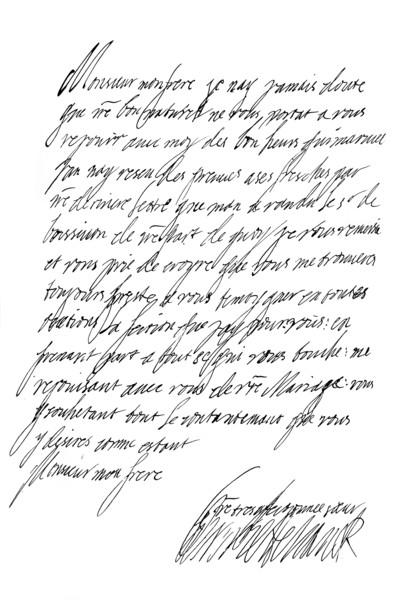 Monsieur mon frere je nay jamais doute
que vre bon naturel ne vous portat a vous
rejouir avec moy des bon heurs qui marive
jan nay reseu des preuves ases fresches par
vre derniere lettre que man a randu le sr de
de vre part de quoy je vous remersie
et vous prie de croyre que vous me trouveres
toujours preste a vous temoygner en toutes
ocations la que jay pour vous: en
prenant part a tout se qui vous touche: me
rejouisant avec vous de vre Mariage: vous
y souhetant tout le contantemant que vous
y desires comme estant
Monsieur mon frere
vre tres afectionnee sœur